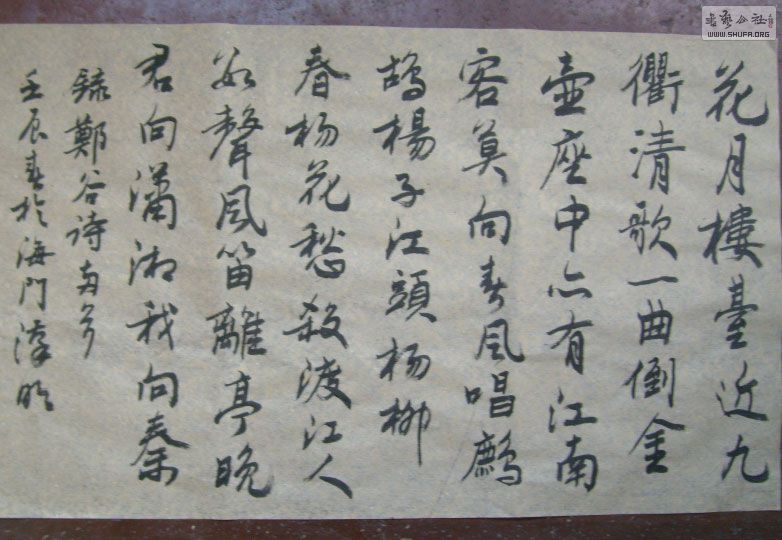 花月樓臺近九
衢清歌一曲倒金
壺座中亦有江南
客莫向春风唱鷓
鴣楊子江頭杨柳
春杨花愁殺渡江人
数聲风笛離亭晚
君向瀟湘我向秦
錄鄭谷诗两首
壬辰春於海門
書藝公社
WWW.SHUFA.ORG